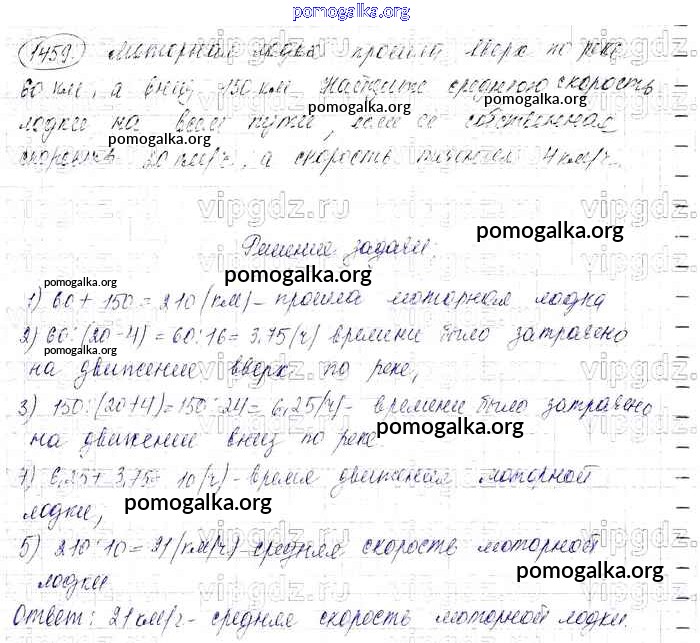 pomogalka.org
1459. Моторная лодка прошла вверх по реке
60 км, а вниз 150 км. Найдите среднюю скорость
pomogalka.org
лодки на всем пути, если её собственная
pomogalka.org
скорость 20 км/ч, а скорость течения 4 км/ч.
vipgdz.ru vipgdz.ru vipgdz.ru
pomogalka.org
Решение задачи:
pomogalka.org pomogalka.org
1) 60 + 150 = 210 (км) - прошла моторная лодка
2) 60 : (20-4) = 60 : 16 = 3,75 (ч) времени было затрачено
pomogalka.org
на движение вверх по реке,
3) 150 : (20+4) = 150 : 24 = 6,25 (ч) - времени было затрачено
на движении вниз по реке
pomogalka.org
4) 6,25 + 3,75 = 10 (ч) - время движения моторной
лодки,
pomogalka.org
5) 210 : 10 = 21 (км/ч) - средняя скорость моторной
лодки
pomogalka.org
Ответ: 21 км/ч - средняя скорость моторной лодки.